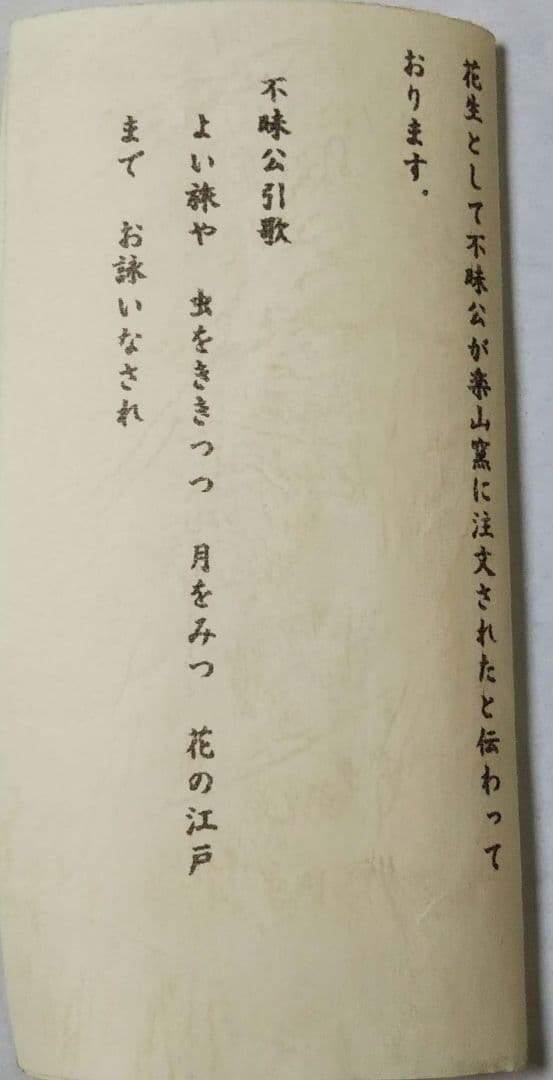 花生として不昧公が楽山窯に注文されたと伝わって
おります。
不昧公引歌
よい旅や　虫をききつつ　月をみつ　花の江戸
まで　お詠いなされ